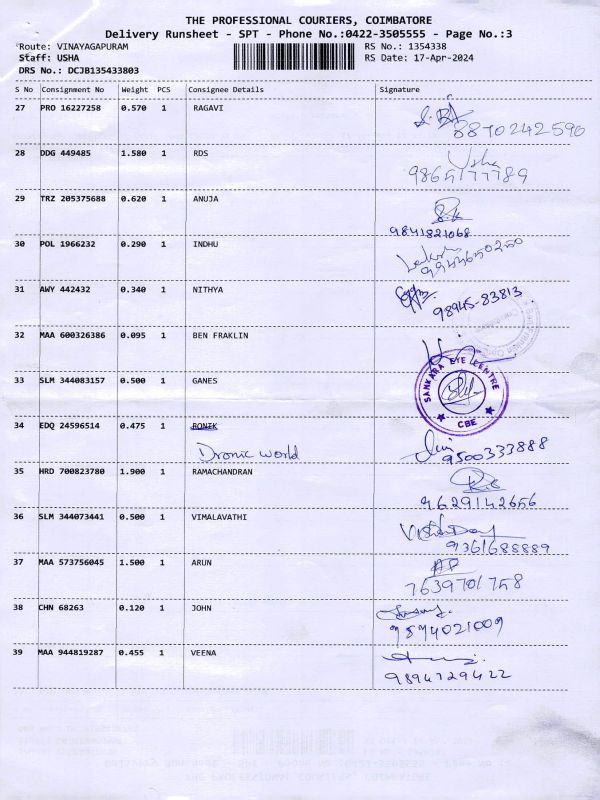 THE PROFESSIONAL COURIERS, COIMBATORE
Delivery Runsheet - SPT - Phone No.:0422-3505555 - Page No.:3
Route: VINAYAGAPURAM RS No.: 1354338
Staff: USHA RS Date: 17-Apr-2024
DRS No.: DCJB135433803
S No Consignment No Weight PCS Consignee Details Signature
27 PRO 16227258 0.570 1 RAGAVI
8870242590
28 DDG 449485 1.580 1 RDS Usha
9865177789
29 TRZ 205375688 0.620 1 ANUJA
9841821068
30 POL 1966232 0.290 1 INDHU
9944650250
31 AWY 442432 0.340 1 NITHYA
98945-83813
32 MAA 600326386 0.095 1 BEN FRAKLIN
33 SLM 344083157 0.500 1 GANES
SANKARA EYE CENTRE
CBE
34 EDQ 24596514 0.475 1 RONIK
Dronic world 9500333888
35 HRD 700823780 1.900 1 RAMACHANDRAN
9629142656
36 SLM 344073441 0.500 1 VIMALAVATHI
9361688889
37 MAA 573756045 1.500 1 ARUN
7639701758
38 CHN 68263 0.120 1 JOHN
9894021009
39 MAA 944819287 0.455 1 VEENA
9894729422